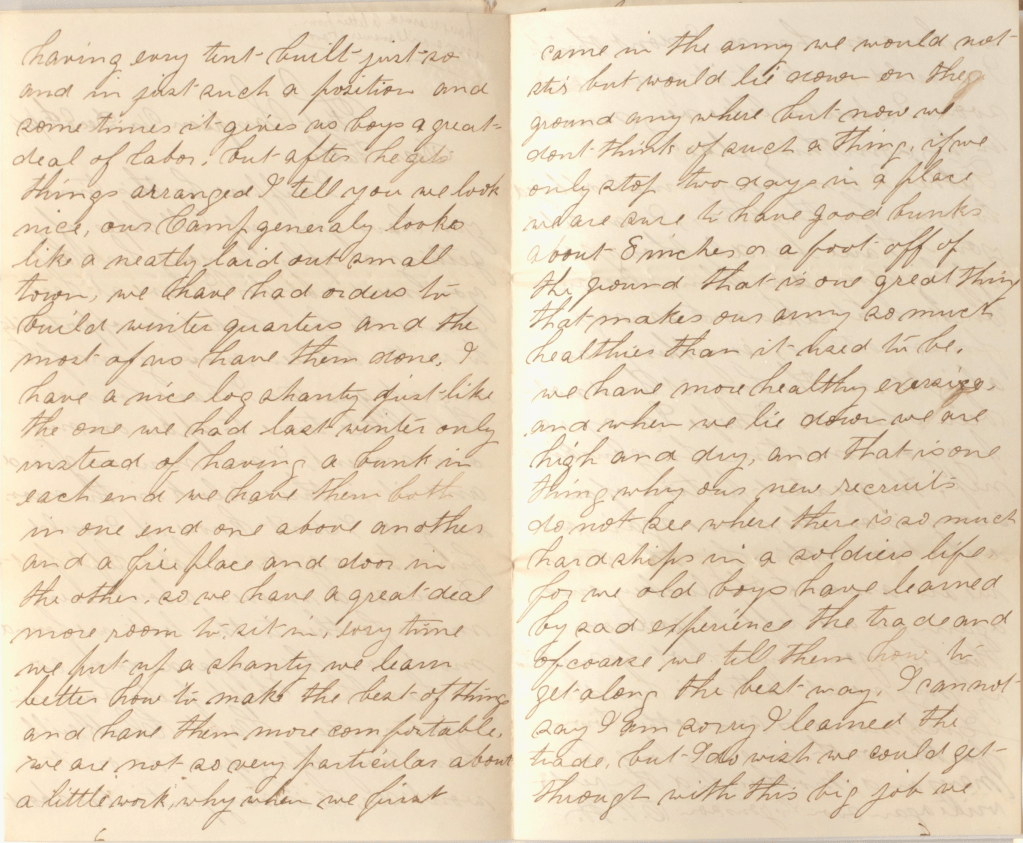 having evry tent built just so
and in just such a position and
some times it gives us boys a great
deal of labor. but after he gets
things arranged I tell you we look
nice, our Camp generaly looks
like a neatly laid out small
town, we have had orders to
build winter quarters and the
most of us have them done, I
have a nice log shanty just like
the one we had last winter only
instead of having a bunk in
each end we have them both
in one end one above another
and a fire place and door in
the other. so we have a great deal
more room to sit in, evry time
we put up a shanty we learn
better how to make the best of things
and have them more comfortable.
we are not so very particular about
a little work, why when we first
6
came in the army we would not
stir but would lie down on the
ground any where but now we
dont think of such a thing, if we
only stop two days in a place
we are sure to have good bunks
about 8 inches or a foot off of
the ground that is one great thing
that makes our army so much
healthier than it used to be.
we have more healthy exersize,
and when we lie down we are
high and dry, and that is one
thing why our new recruits
do not see where there is so much
hardships in a soldiers life
for we old boys have learned
by sad experience the trade and
of coarse we tell them how to
get along the best way, I cannot
say I am sorry I learned the
trade, but I do wish we could get
through with this big job we
7